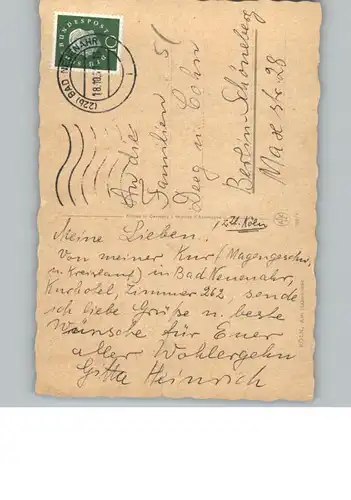 DEUTSCHE
BUNDESPOST
(22b) BAD NEUENAHR
18.10.5
An die
Familien
Deeg u Cohn
Berlin-Schöneberg
Max str 28
z.Zt. Köln
Meine Lieben.
Von meiner Kur (Magengeschw.
u Kreislauf) in Bad Neuenahr,
Kurhotel, Zimmer 262, sende
ich liebe Grüße u. beste
Wünsche für Euer
aller Wohlergehn
Gitta Heinrich
KÖLN, AM